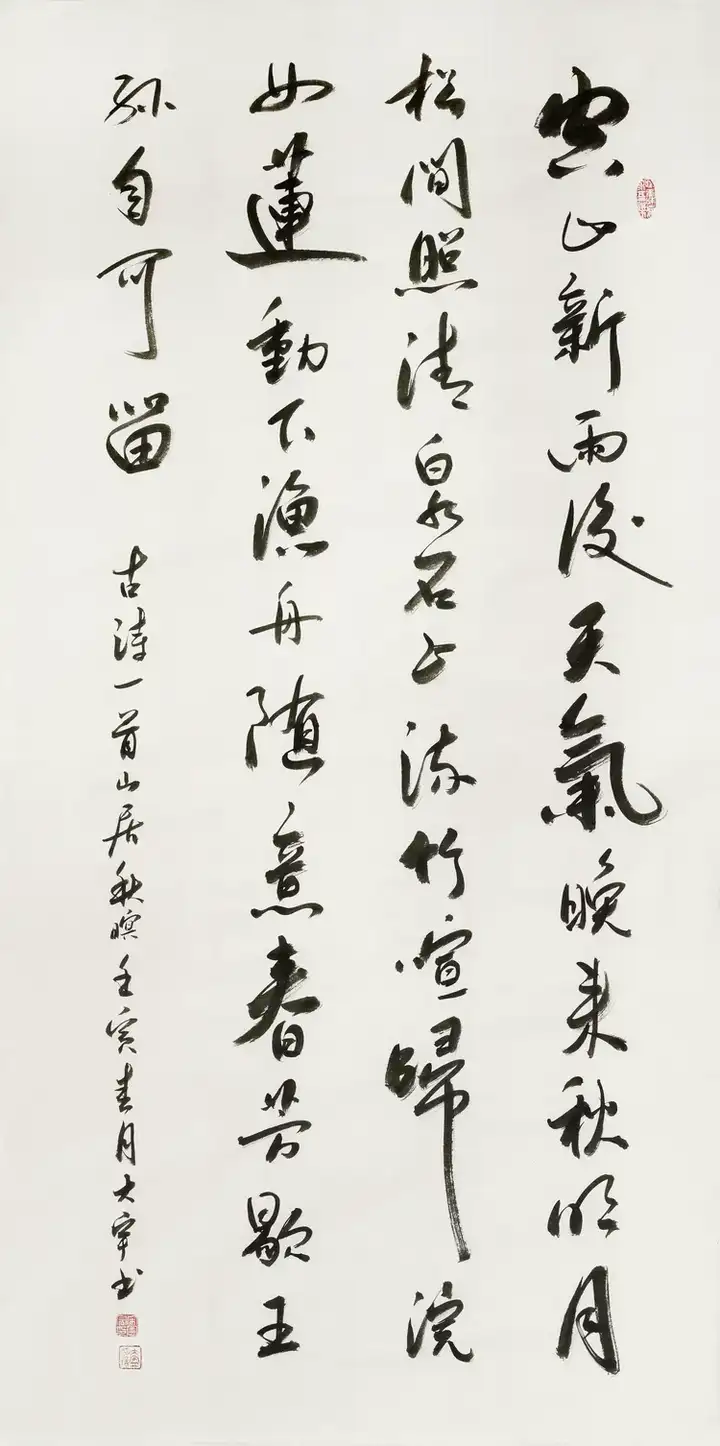 空山新雨後天氣晚来秋明月
松間照清泉石上流竹喧歸浣
女蓮動下漁舟隨意春芳歇王
孫自可留
古詩一首山居秋暝壬寅春月大宇书